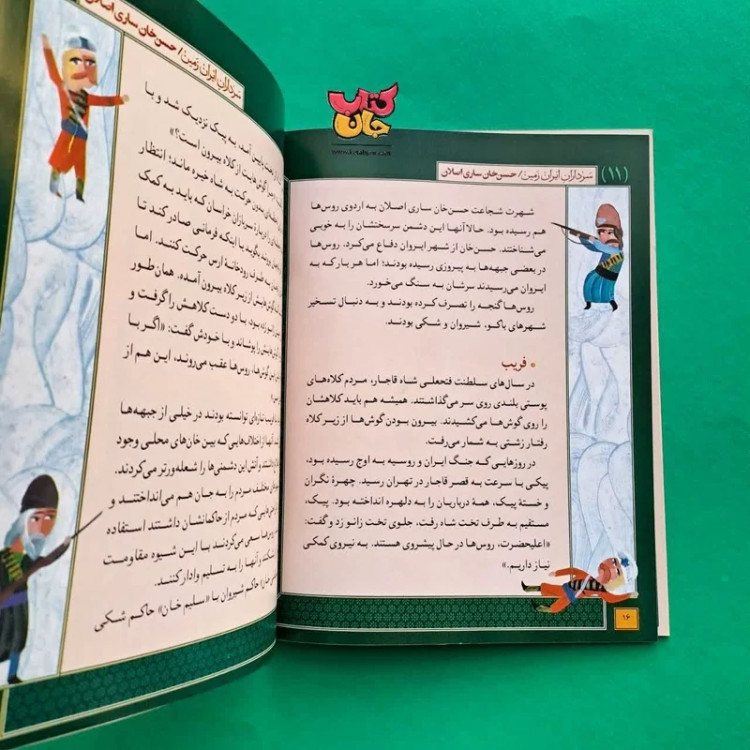 کتاب
جان
(۱۱) سرداران ایران زمین/ حسن‌خان ساری اصلان
شهرت شجاعت حسن‌خان ساری اصلان به اردوی روس‌ها
هم رسیده بود. حالا آنها این دشمن سرسختشان را به خوبی
می‌شناختند. حسن‌خان از شهر ایروان دفاع می‌کرد. روس‌ها
در بعضی جبهه‌ها به پیروزی رسیده بودند؛ اما هر بار که به
ایروان می‌رسیدند سرشان به سنگ می‌خورد.
روس‌ها گنجه را تصرف کرده بودند و به دنبال تسخیر
شهرهای باکو، شیروان و شکی بودند.
• فریب
در سال‌های سلطنت فتحعلی شاه قاجار، مردم کلاه‌های
پوستی بلندی روی سر می‌گذاشتند. همیشه هم باید کلاهشان
را روی گوش‌ها می‌کشیدند. بیرون بودن گوش‌ها از زیر کلاه
رفتار زشتی به شمار می‌رفت.
در روزهایی که جنگ ایران و روسیه به اوج رسیده بود،
پیکی با سرعت به قصر قاجار در تهران رسید. چهرهٔ نگران
و خستهٔ پیک، همهٔ درباریان را به دلهره انداخته بود. پیک،
مستقیم به طرف تخت شاه رفت، جلوی تخت زانو زد و گفت:
«اعلیحضرت، روس‌ها در حال پیشروی هستند. به نیروی کمکی
نیاز داریم.»
۱۶
سرداران ایران زمین/ حسن‌خان ساری اصلان
پایین آمد، به پیک نزدیک شد و با
گوش‌هایت از کلاه بیرون است؟»
بدون حرکت به شاه خیره ماند؛ انتظار
دربارهٔ سربازان خراسان که باید به کمک
بگوید یا اینکه فرمانی صادر کند تا
به طرف رودخانهٔ ارس حرکت کنند. اما
از زیر کلاه بیرون آمده، همان‌طور
زده بود، با دو دست کلاهش را گرفت و
را پوشاند و با خودش گفت: «اگر با
گوش‌ها، روس‌ها عقب می‌روند، این هم از
تازه‌ای توانسته بودند در خیلی از جبهه‌ها
آنها از اختلاف‌هایی که بین خان‌های محلی وجود
و آتش این دشمنی‌ها را شعله‌ورتر می‌کردند.
مختلف مردم را به جان هم می‌انداختند و
که مردم از حاکمانشان داشتند استفاده
سعی می‌کردند با این شیوه مقاومت
و آنها را به تسلیم وادار کنند.
حاکم شیروان با «سلیم خان» حاکم شکی